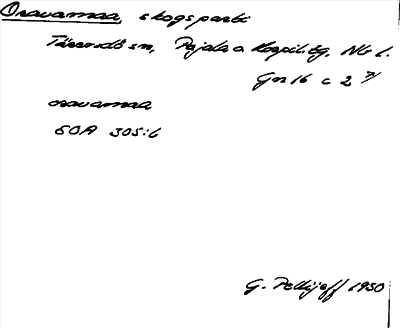 Oravamaa, skogsparti
Tärendö sn, Pajala o Korpil. tg, Nb l.
Gn 16 c 2
oravamaa
SOA 305:6
G. Pellijeff 1950